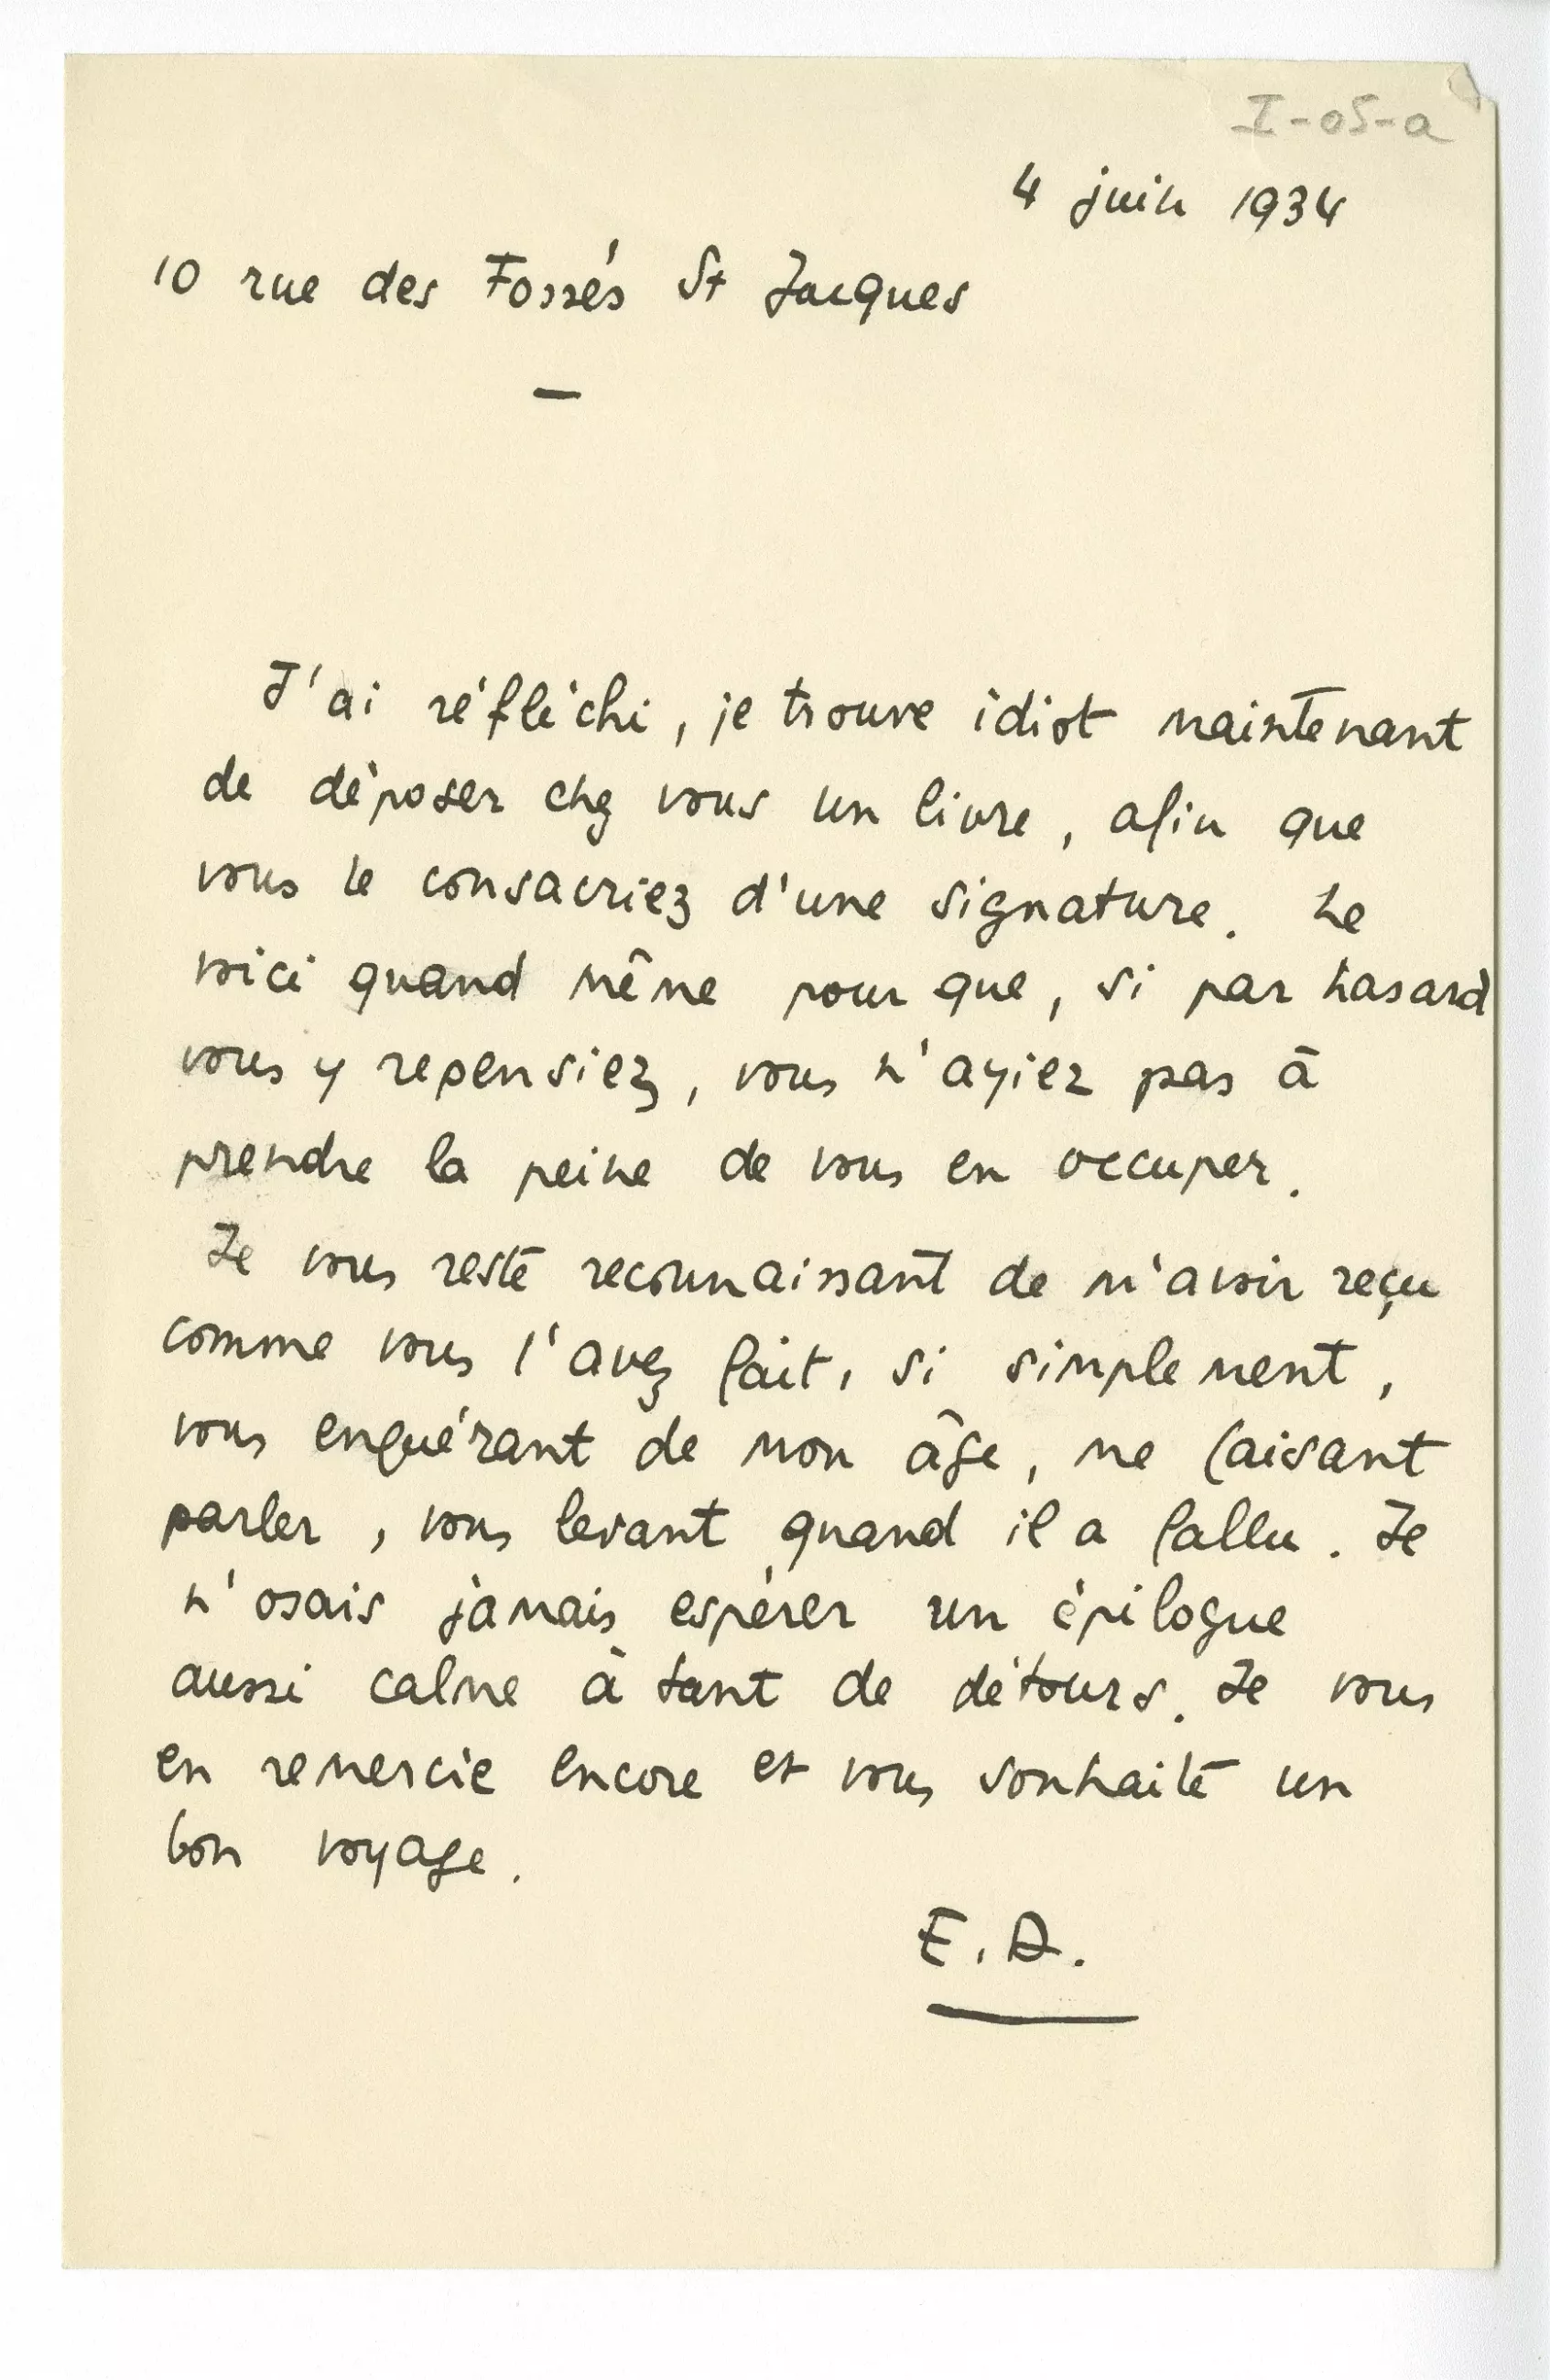 I-05-a
4 juin 1934
10 rue des Fossés St Jacques
—
J'ai réfléchi, je trouve idiot maintenant
de déposer chez vous un livre, afin que
vous le consacriez d'une signature. Le
voici quand même pour que, si par hasard
vous y repensiez, vous n'ayiez pas à
prendre la peine de vous en occuper.
Je vous reste reconnaissant de m'avoir reçu
comme vous l'avez fait, si simplement,
vous enquérant de mon âge, me faisant
parler, vous levant quand il a fallu. Je
n'osais jamais espérer un épilogue
aussi calme à tant de détours. Je vous
en remercie encore et vous souhaite un
bon voyage.
E.A.